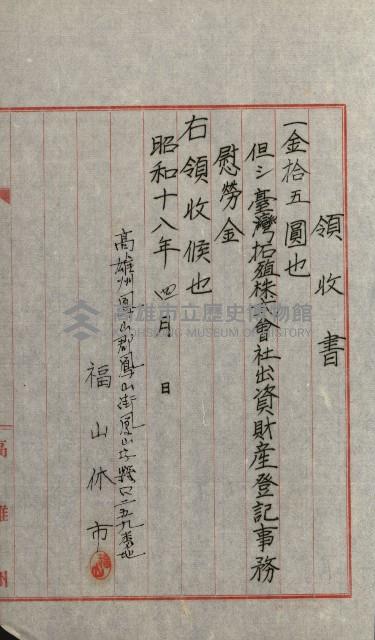 領收書
一金拾五圓也
但シ臺灣拓殖株式會社出資財產登記事務
慰勞金
右領收候也
昭和十八年 四月 日
高雄州鳳山郡鳳山街鳳山字縣口二五九番地
福山休市
高雄州
高雄市立歷史博物館
KAOHSIUNG MUSEUM OF HISTORY